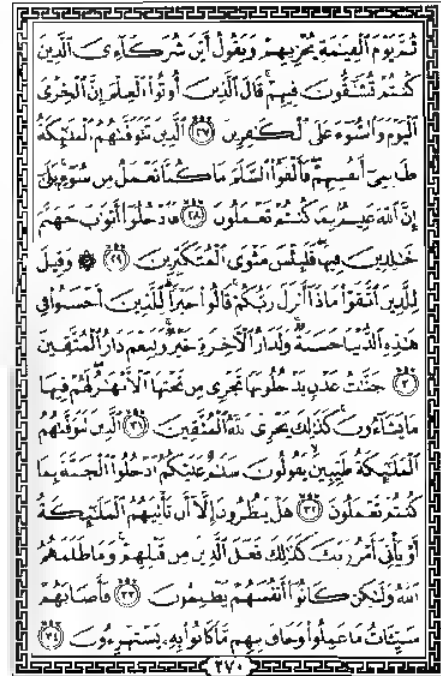 ثُمَّ يَوْمَ الْقِيَـٰمَةِ يُخْزِيهِمْ وَيَقُولُ أَيْنَ شُرَكَآءِىَ الَّذِينَ
كُنتُمْ تُشَـٰٓقُّونَ فِيهِمْ ۚ قَالَ الَّذِينَ أُوتُوا الْعِلْمَ إِنَّ الْخِزْىَ
الْيَوْمَ وَالسُّوٓءَ عَلَى الْكَـٰفِرِينَ ﴿٢٧﴾ الَّذِينَ تَتَوَفَّىٰهُمُ الْمَلَـٰٓئِكَةُ
ظَالِمِىٓ أَنفُسِهِمْ ۖ فَأَلْقَوُا السَّلَمَ مَا كُنَّا نَعْمَلُ مِن سُوٓءٍ ۚ بَلَىٰٓ
إِنَّ اللَّهَ عَلِيمٌۢ بِمَا كُنتُمْ تَعْمَلُونَ ﴿٢٨﴾ فَادْخُلُوٓا أَبْوَٰبَ جَهَنَّمَ
خَـٰلِدِينَ فِيهَا ۖ فَلَبِئْسَ مَثْوَى الْمُتَكَبِّرِينَ ﴿٢٩﴾ ۞ وَقِيلَ
لِلَّذِينَ اتَّقَوْا مَاذَآ أَنزَلَ رَبُّكُمْ ۚ قَالُوا خَيْرًا ۗ لِّلَّذِينَ أَحْسَنُوا فِى
هَـٰذِهِ الدُّنْيَا حَسَنَةٌ ۚ وَلَدَارُ الْـَٔاخِرَةِ خَيْرٌ ۚ وَلَنِعْمَ دَارُ الْمُتَّقِينَ
﴿٣٠﴾ جَنَّـٰتُ عَدْنٍ يَدْخُلُونَهَا تَجْرِى مِن تَحْتِهَا الْأَنْهَـٰرُ ۖ لَهُمْ فِيهَا
مَا يَشَآءُونَ ۚ كَذَٰلِكَ يَجْزِى اللَّهُ الْمُتَّقِينَ ﴿٣١﴾ الَّذِينَ تَتَوَفَّىٰهُمُ
الْمَلَـٰٓئِكَةُ طَيِّبِينَ ۙ يَقُولُونَ سَلَـٰمٌ عَلَيْكُمُ ادْخُلُوا الْجَنَّةَ بِمَا
كُنتُمْ تَعْمَلُونَ ﴿٣٢﴾ هَلْ يَنظُرُونَ إِلَّآ أَن تَأْتِيَهُمُ الْمَلَـٰٓئِكَةُ
أَوْ يَأْتِىَ أَمْرُ رَبِّكَ ۚ كَذَٰلِكَ فَعَلَ الَّذِينَ مِن قَبْلِهِمْ ۚ وَمَا ظَلَمَهُمُ
اللَّهُ وَلَـٰكِن كَانُوٓا أَنفُسَهُمْ يَظْلِمُونَ ﴿٣٣﴾ فَأَصَابَهُمْ
سَيِّـَٔاتُ مَا عَمِلُوا وَحَاقَ بِهِم مَّا كَانُوا بِهِۦ يَسْتَهْزِءُونَ ﴿٣٤﴾
٢٧٠